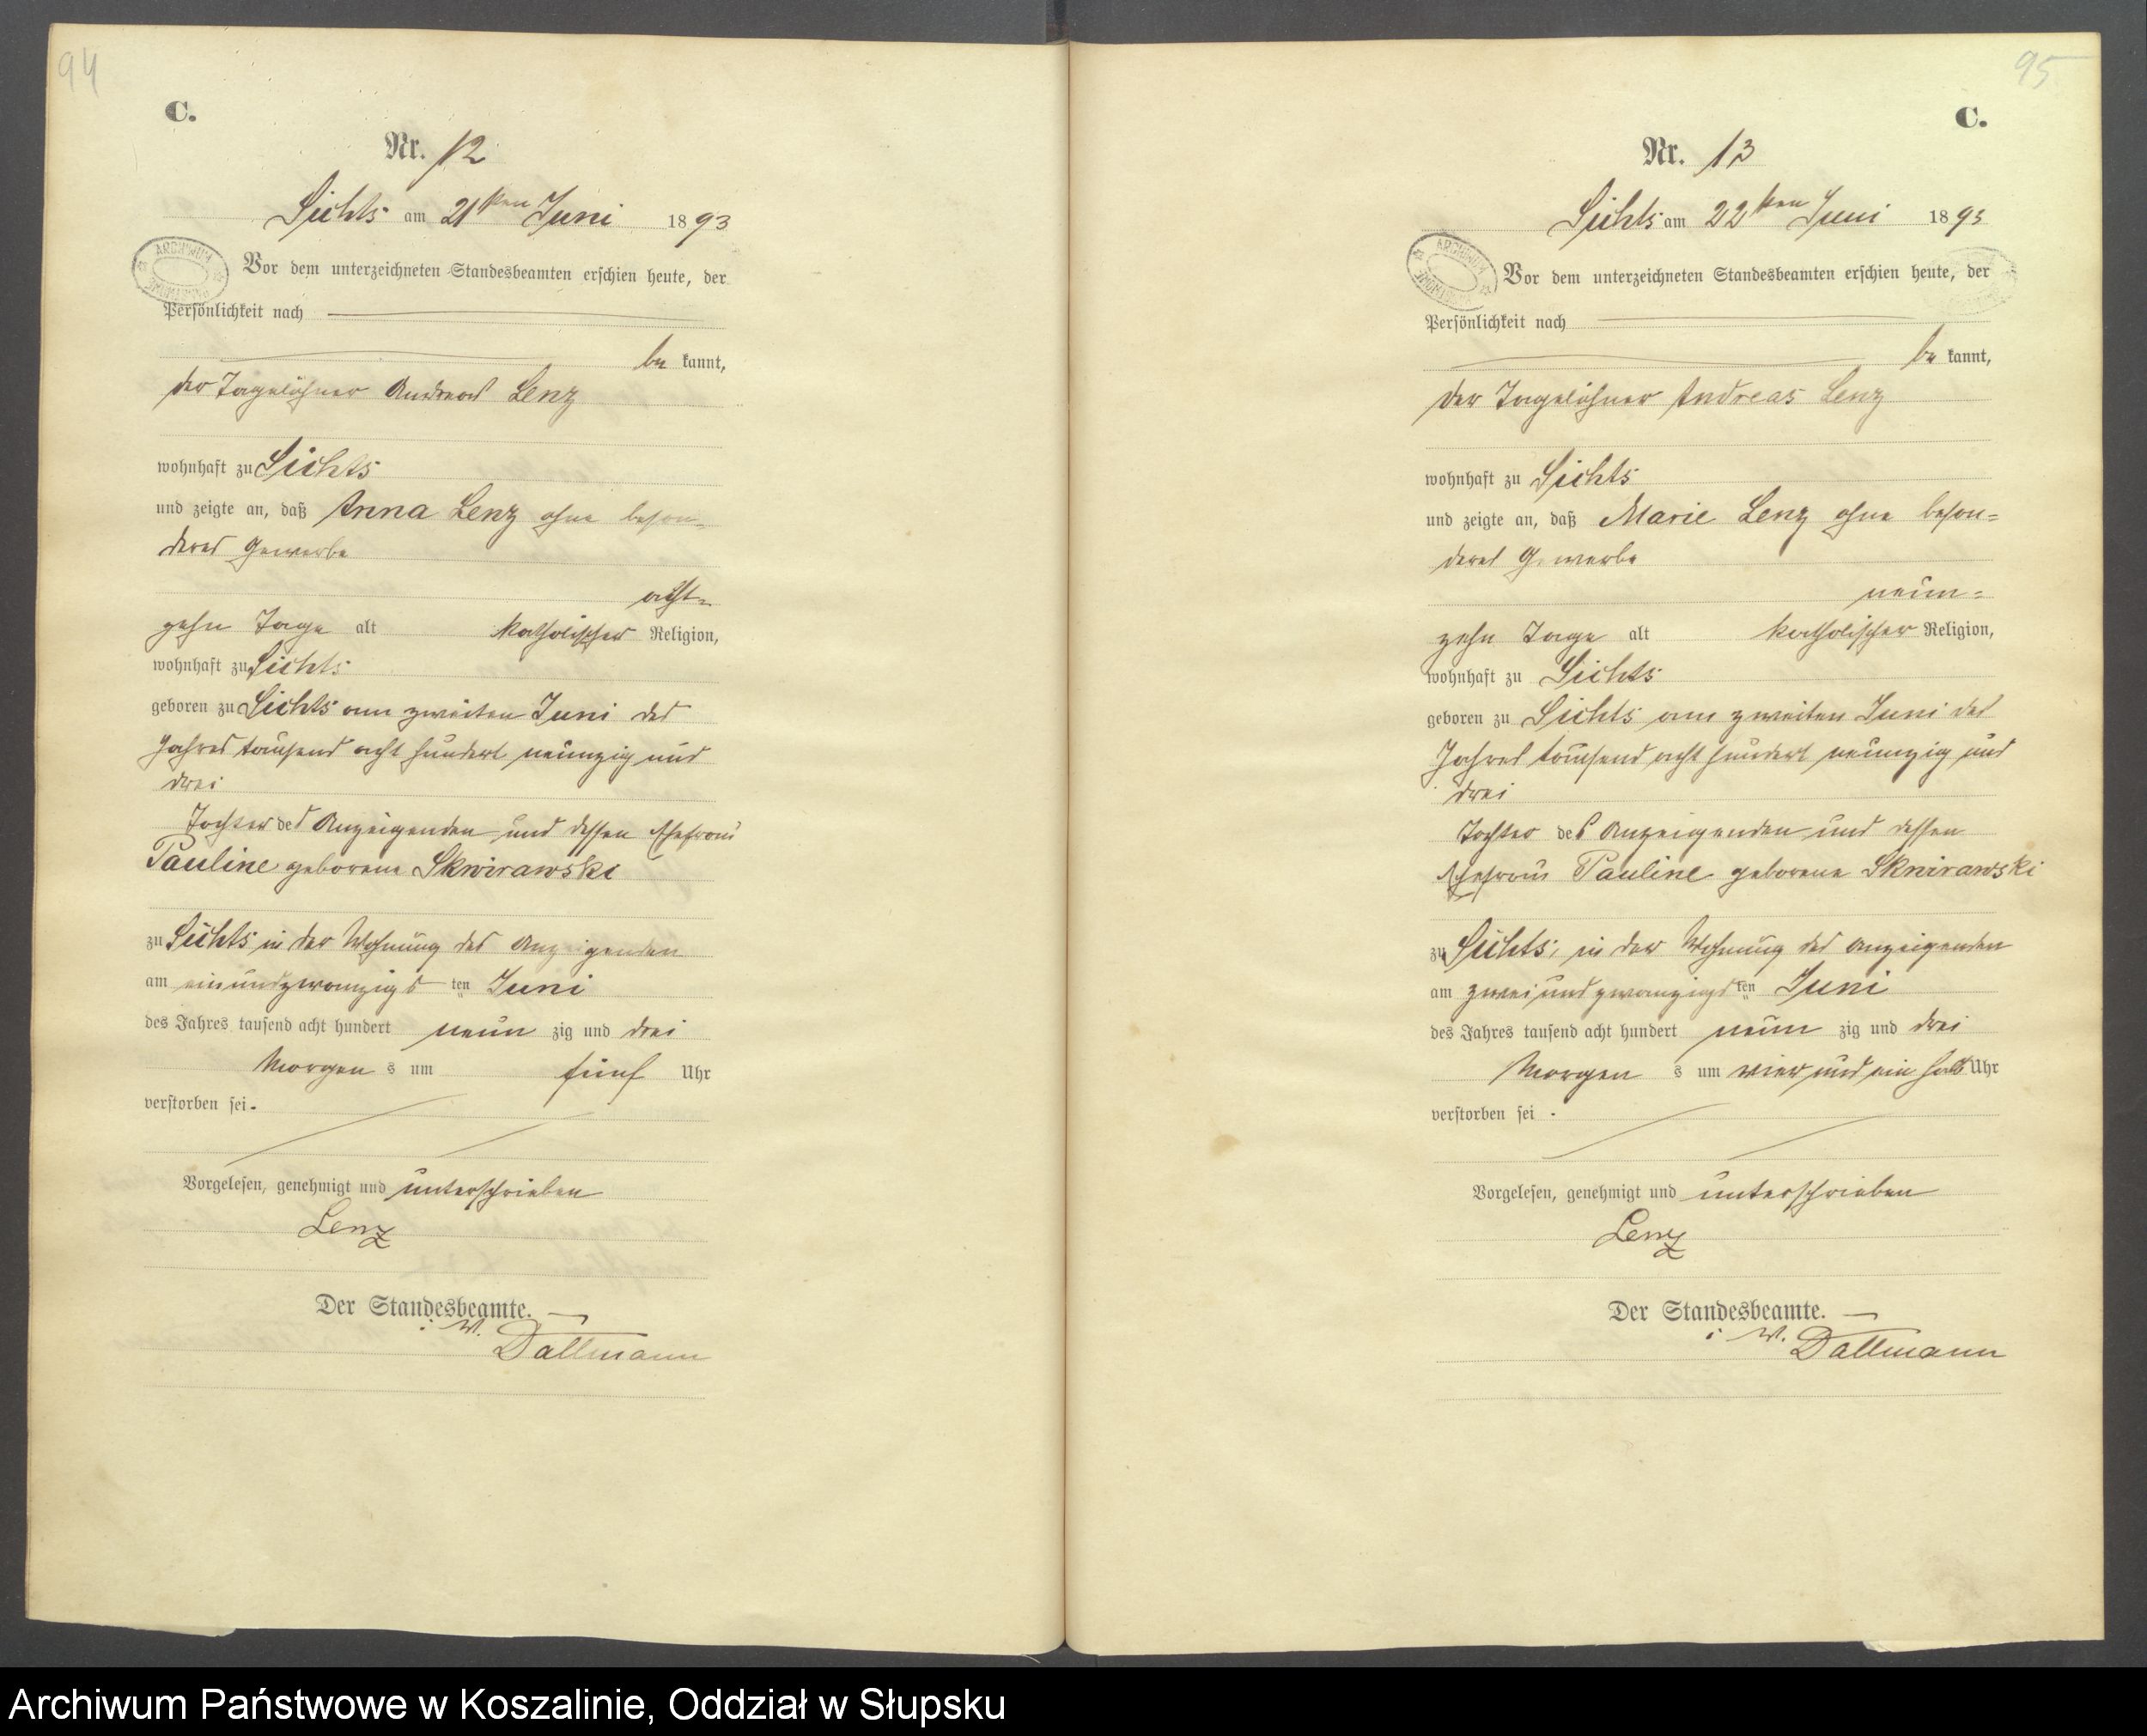 94
C.
Nr. 12
Sichts am 21ten Juni 1893
ARCHIWUM
Vor dem unterzeichneten Standesbeamten erschien heute, der
Persönlichkeit nach
be kannt,
der Tagelöhner Andreas Lenz
wohnhaft zu Sichts
und zeigte an, daß Anna Lenz ohne beson-
deres Gewerbe
acht-
zehn Tage alt katholischer Religion,
wohnhaft zu Sichts
geboren zu Sichts am zweiten Juni des
Jahres tausend acht hundert neunzig und
drei
Tochter des Anzeigenden und dessen Ehefrau
Pauline geborene Skwirawski
zu Sichts in der Wohnung des Anzeigenden
am einundzwanzigsten Juni
des Jahres tausend acht hundert neun zig und drei
Morgen s um fünf Uhr
verstorben sei.
Vorgelesen, genehmigt und unterschrieben
Lenz
Der Standesbeamte.
i. V. Dallmann
95
C.
Nr. 13
Sichts am 22ten Juni 1893
ARCHIWUM
Vor dem unterzeichneten Standesbeamten erschien heute, der
Persönlichkeit nach
be kannt,
der Tagelöhner Andreas Lenz
wohnhaft zu Sichts
und zeigte an, daß Marie Lenz ohne beson=
deres Gewerbe
neun=
zehn Tage alt katholischer Religion,
wohnhaft zu Sichts
geboren zu Sichts am zweiten Juni des
Jahres tausend acht hundert neunzig und
drei
Tochter des Anzeigenden und dessen
Ehefrau Pauline geborene Skwirawski
zu Sichts, in der Wohnung des Anzeigenden
am zweiundzwanzigsten Juni
des Jahres tausend acht hundert neun zig und drei
Morgen s um vier und ein halb Uhr
verstorben sei.
Vorgelesen, genehmigt und unterschrieben
Lenz
Der Standesbeamte.
i. V. Dallmann
Archiwum Państwowe w Koszalinie, Oddział w Słupsku